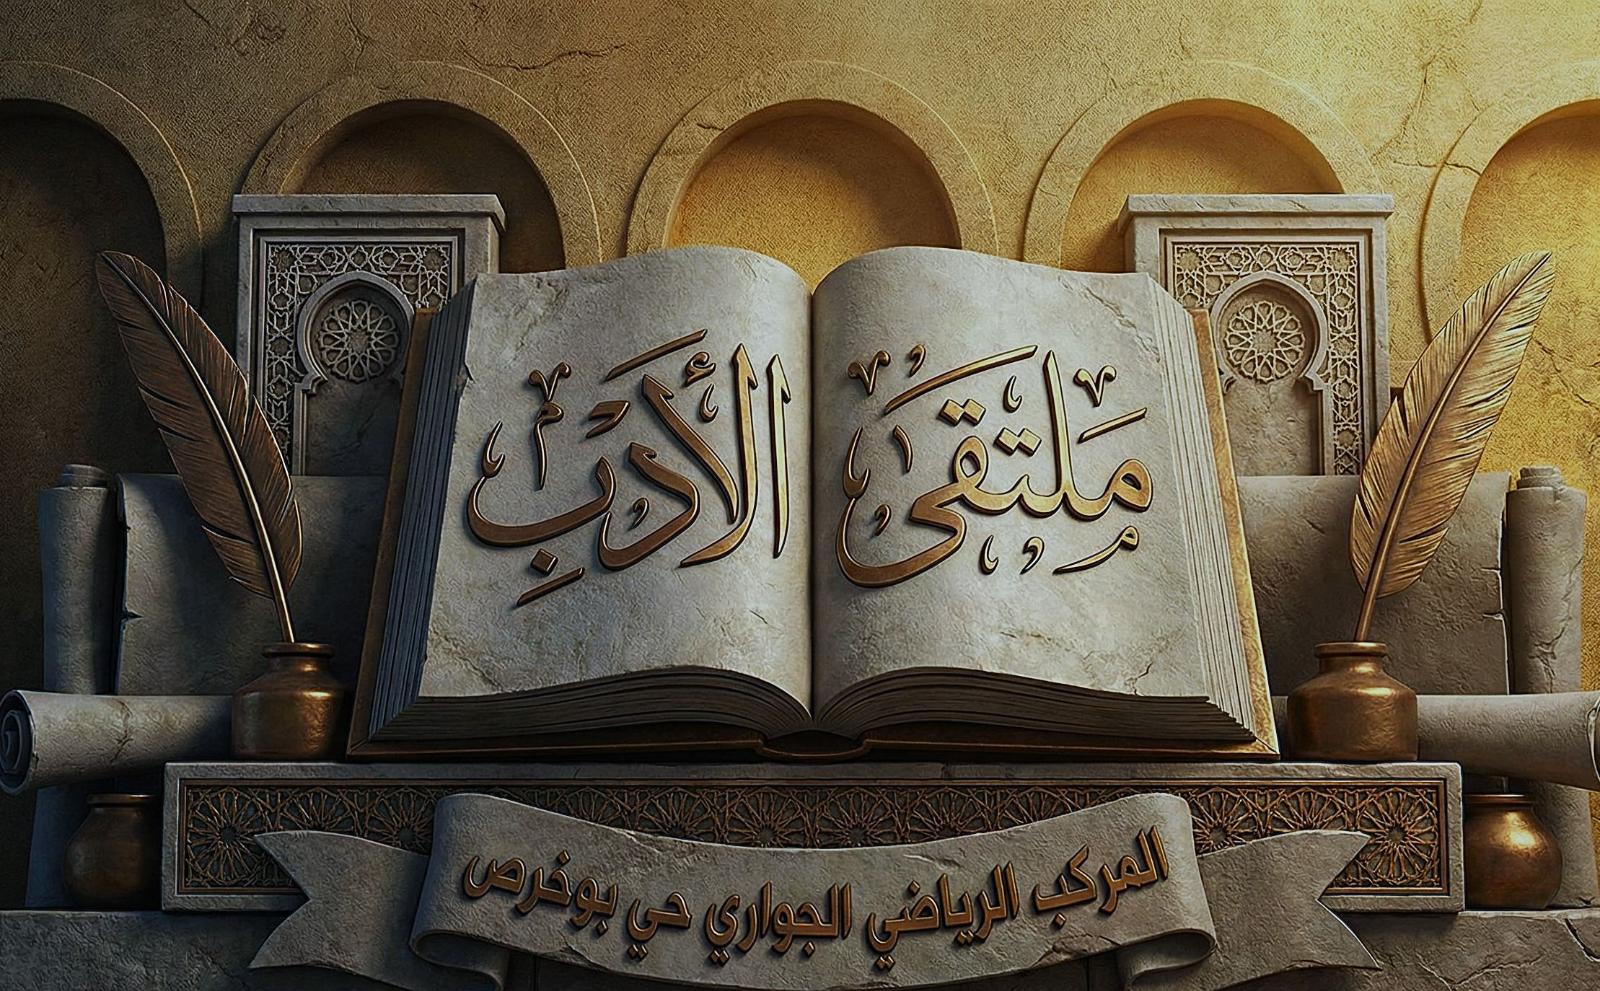 ملتقى الأدب
المركب الرياضي الجواري حي بوخرص